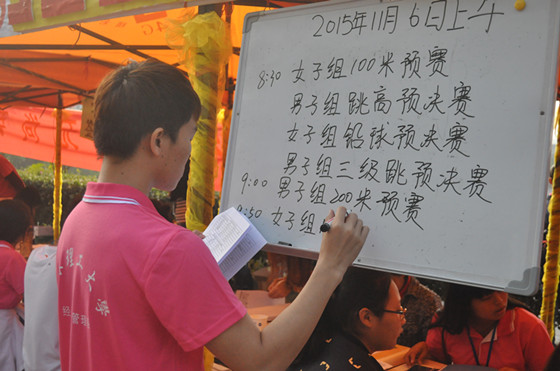 2015年11月6日上午
8:30 女子组100米预赛
男子组跳高预决赛
女子组铅球预决赛
男子组三级跳预决赛
9:00 男子组200米预赛
9:50 女子组
理工大学
经济管理
4G